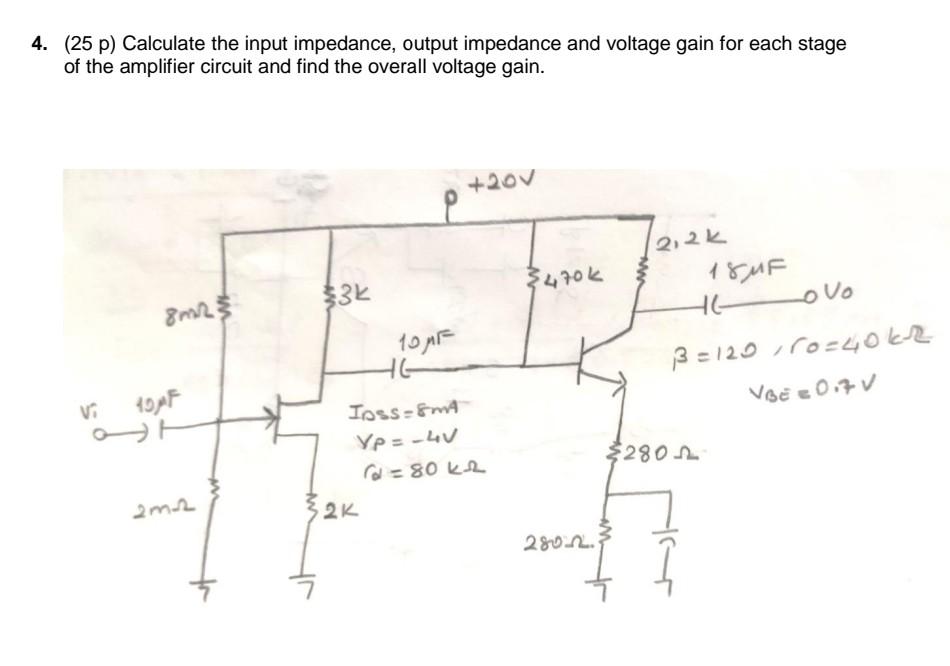 4. (25 p) Calculate the input impedance, output impedance and voltage gain for each stage
of the amplifier circuit and find the overall voltage gain.
+20V
2,2K
18μF
Vo
470K
3K
8mΩ
10μF
β=120, ro=40kΩ
VBE=0.7V
Vi
10μF
IDSS=8mA
VP=-4V
rd=80kΩ
280Ω
2mΩ
2K
280Ω.